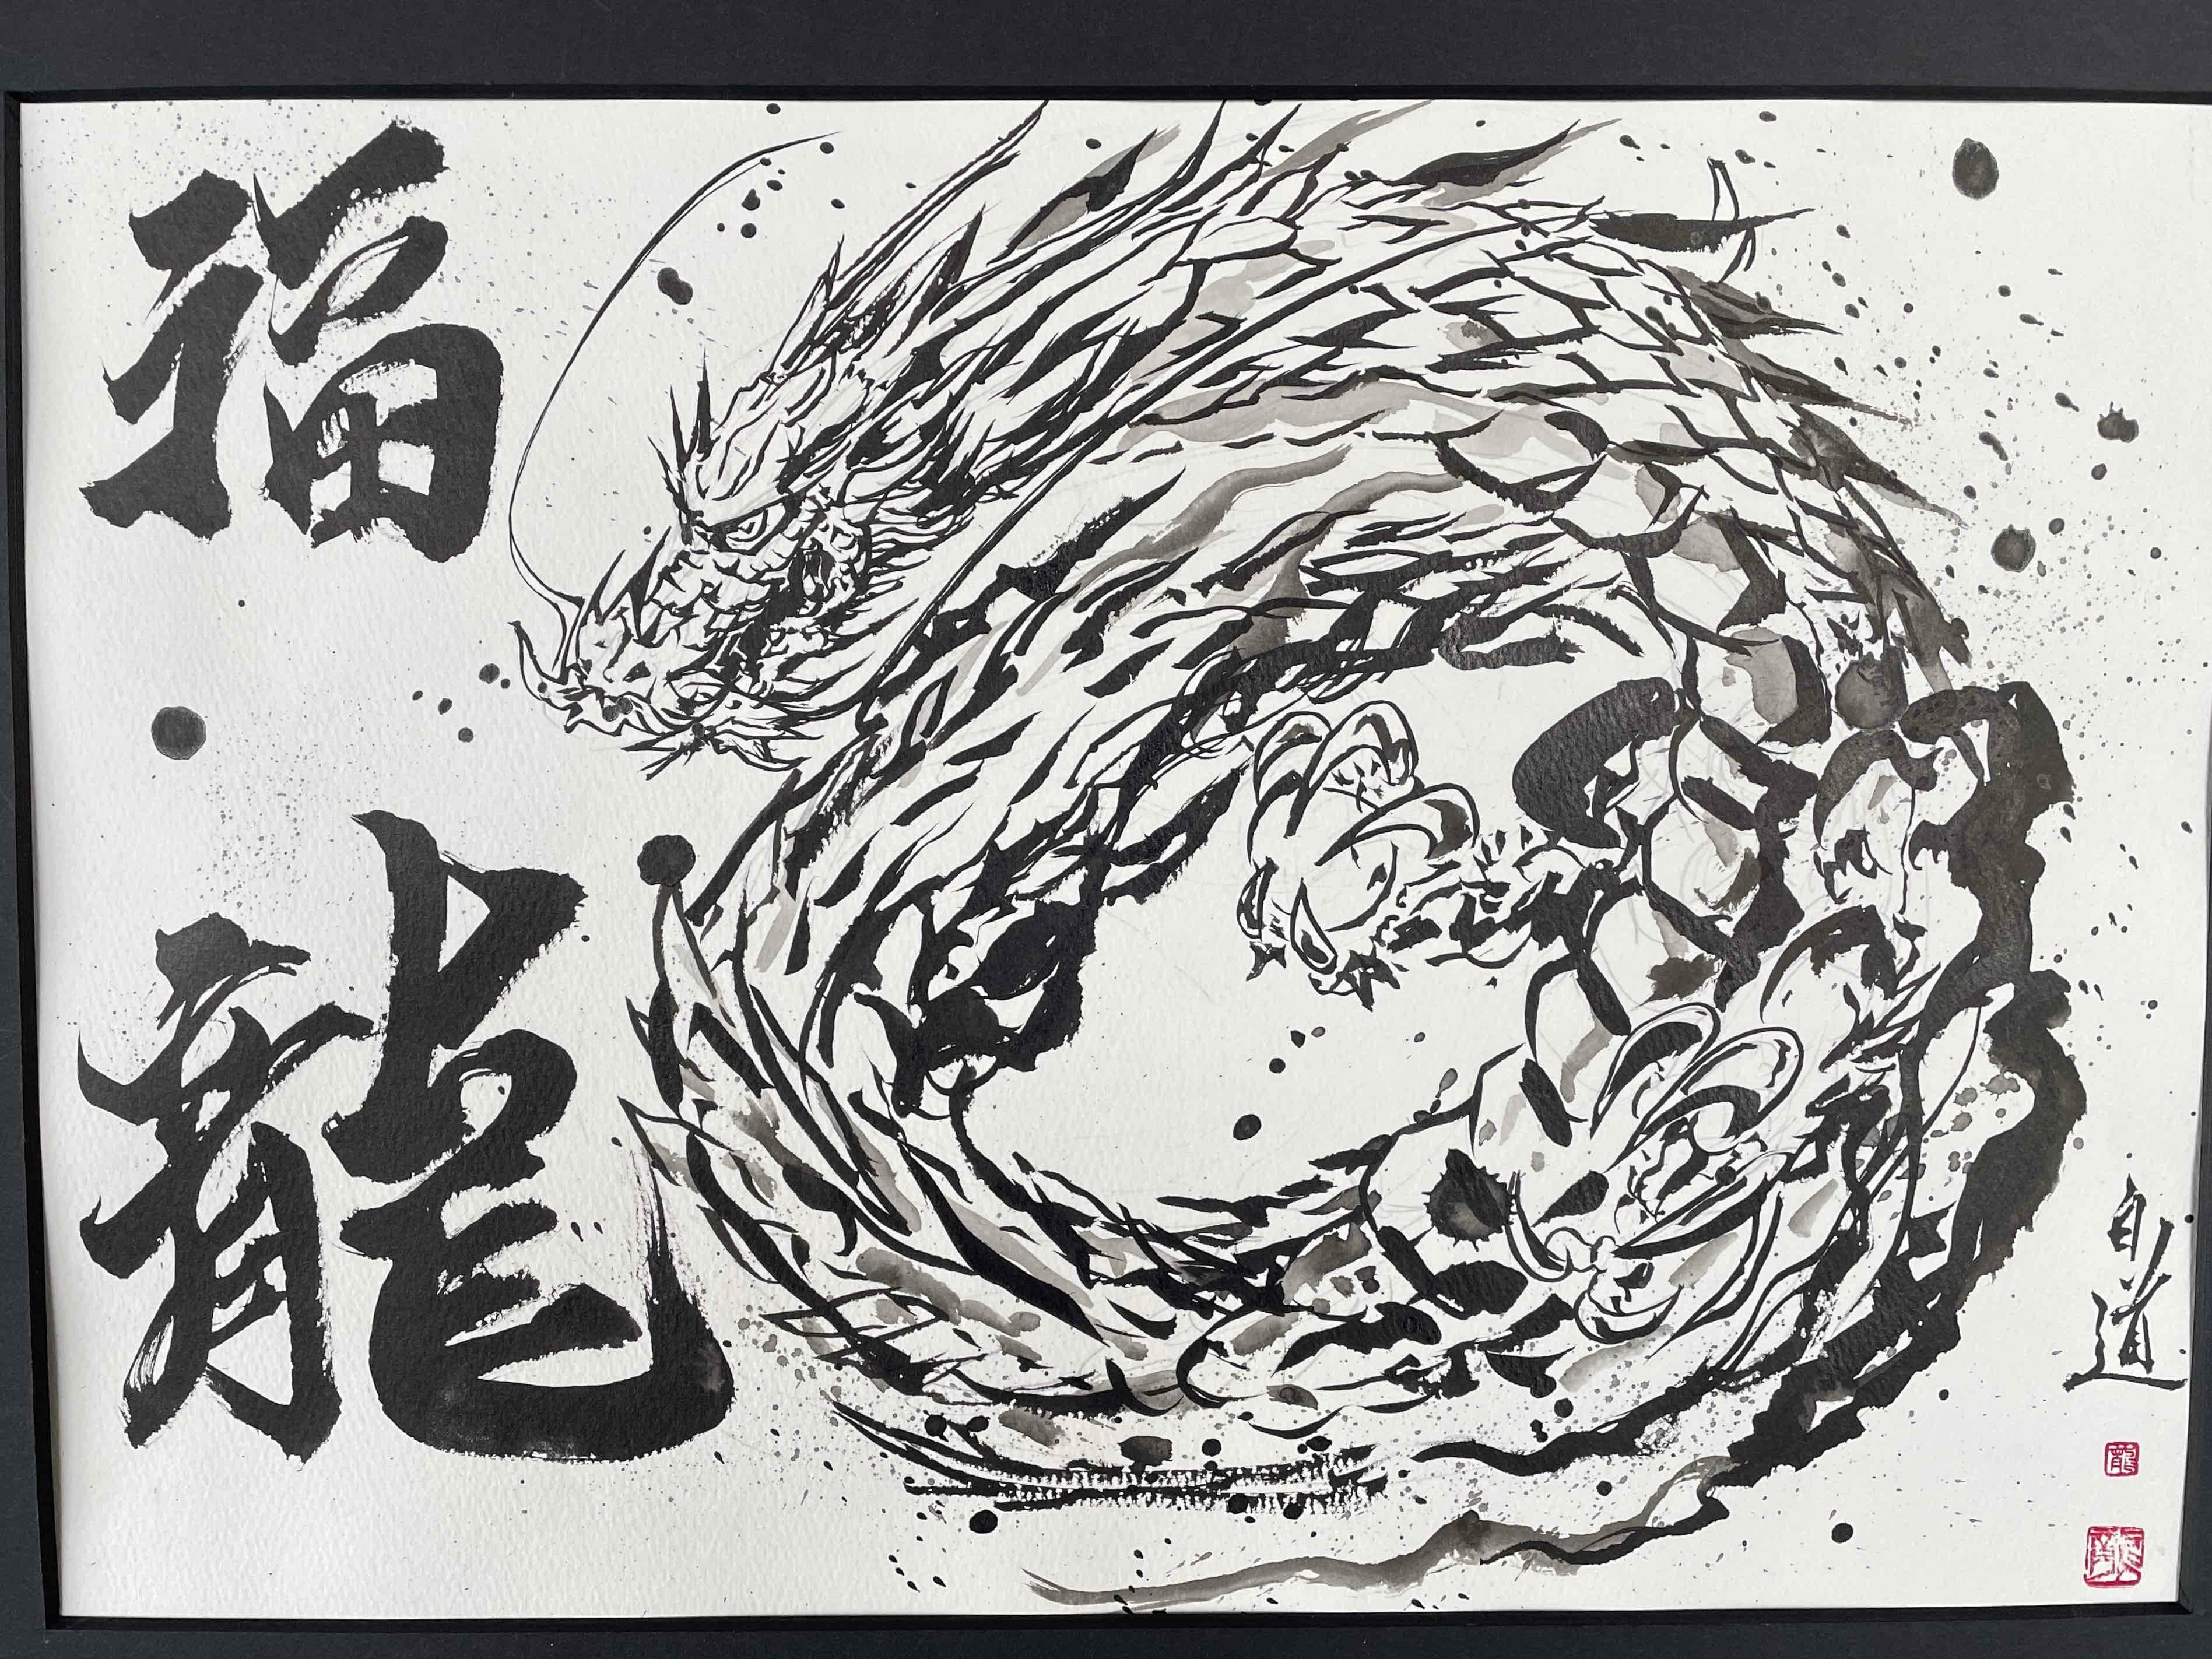 福
龍
白道
龍